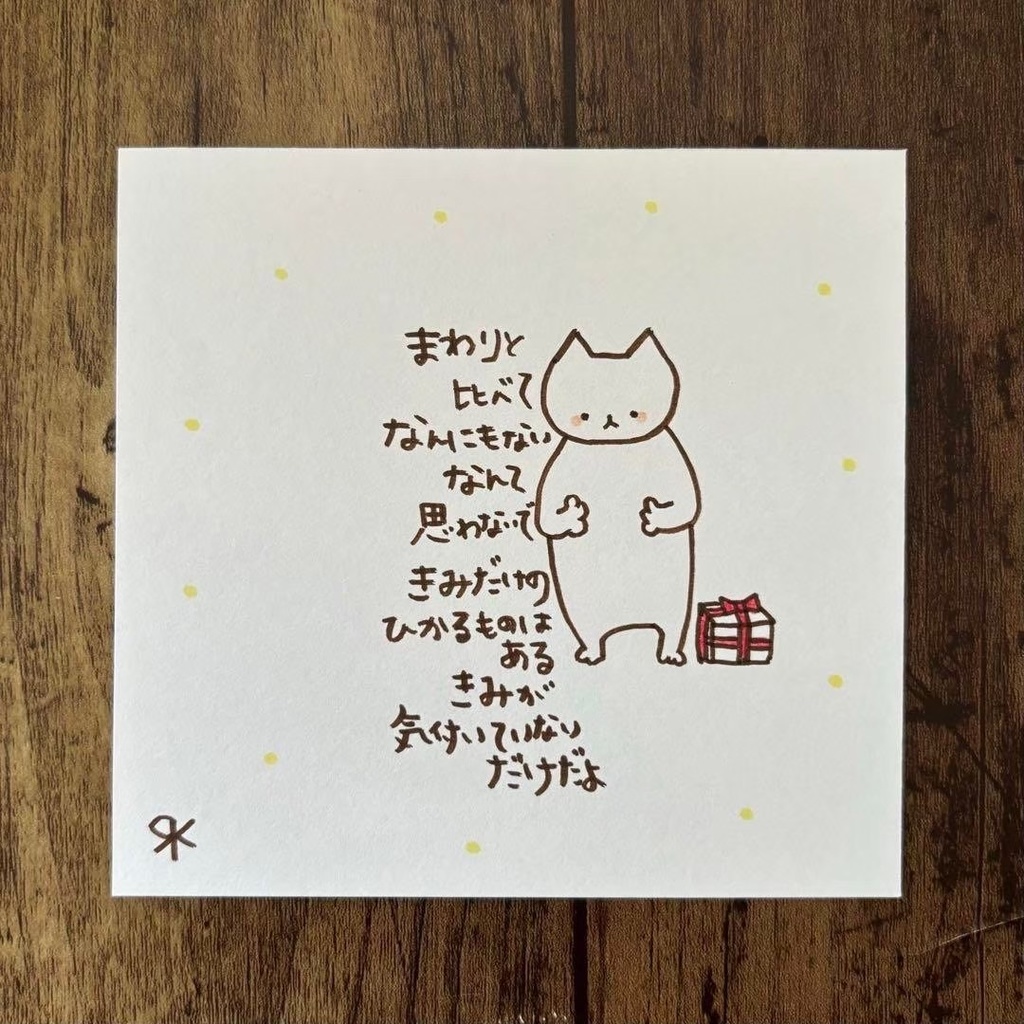 まわりと
比べて
なんにもない
なんて
思わないで
きみだけの
ひかるものは
ある
きみが
気付いていない
だけだよ